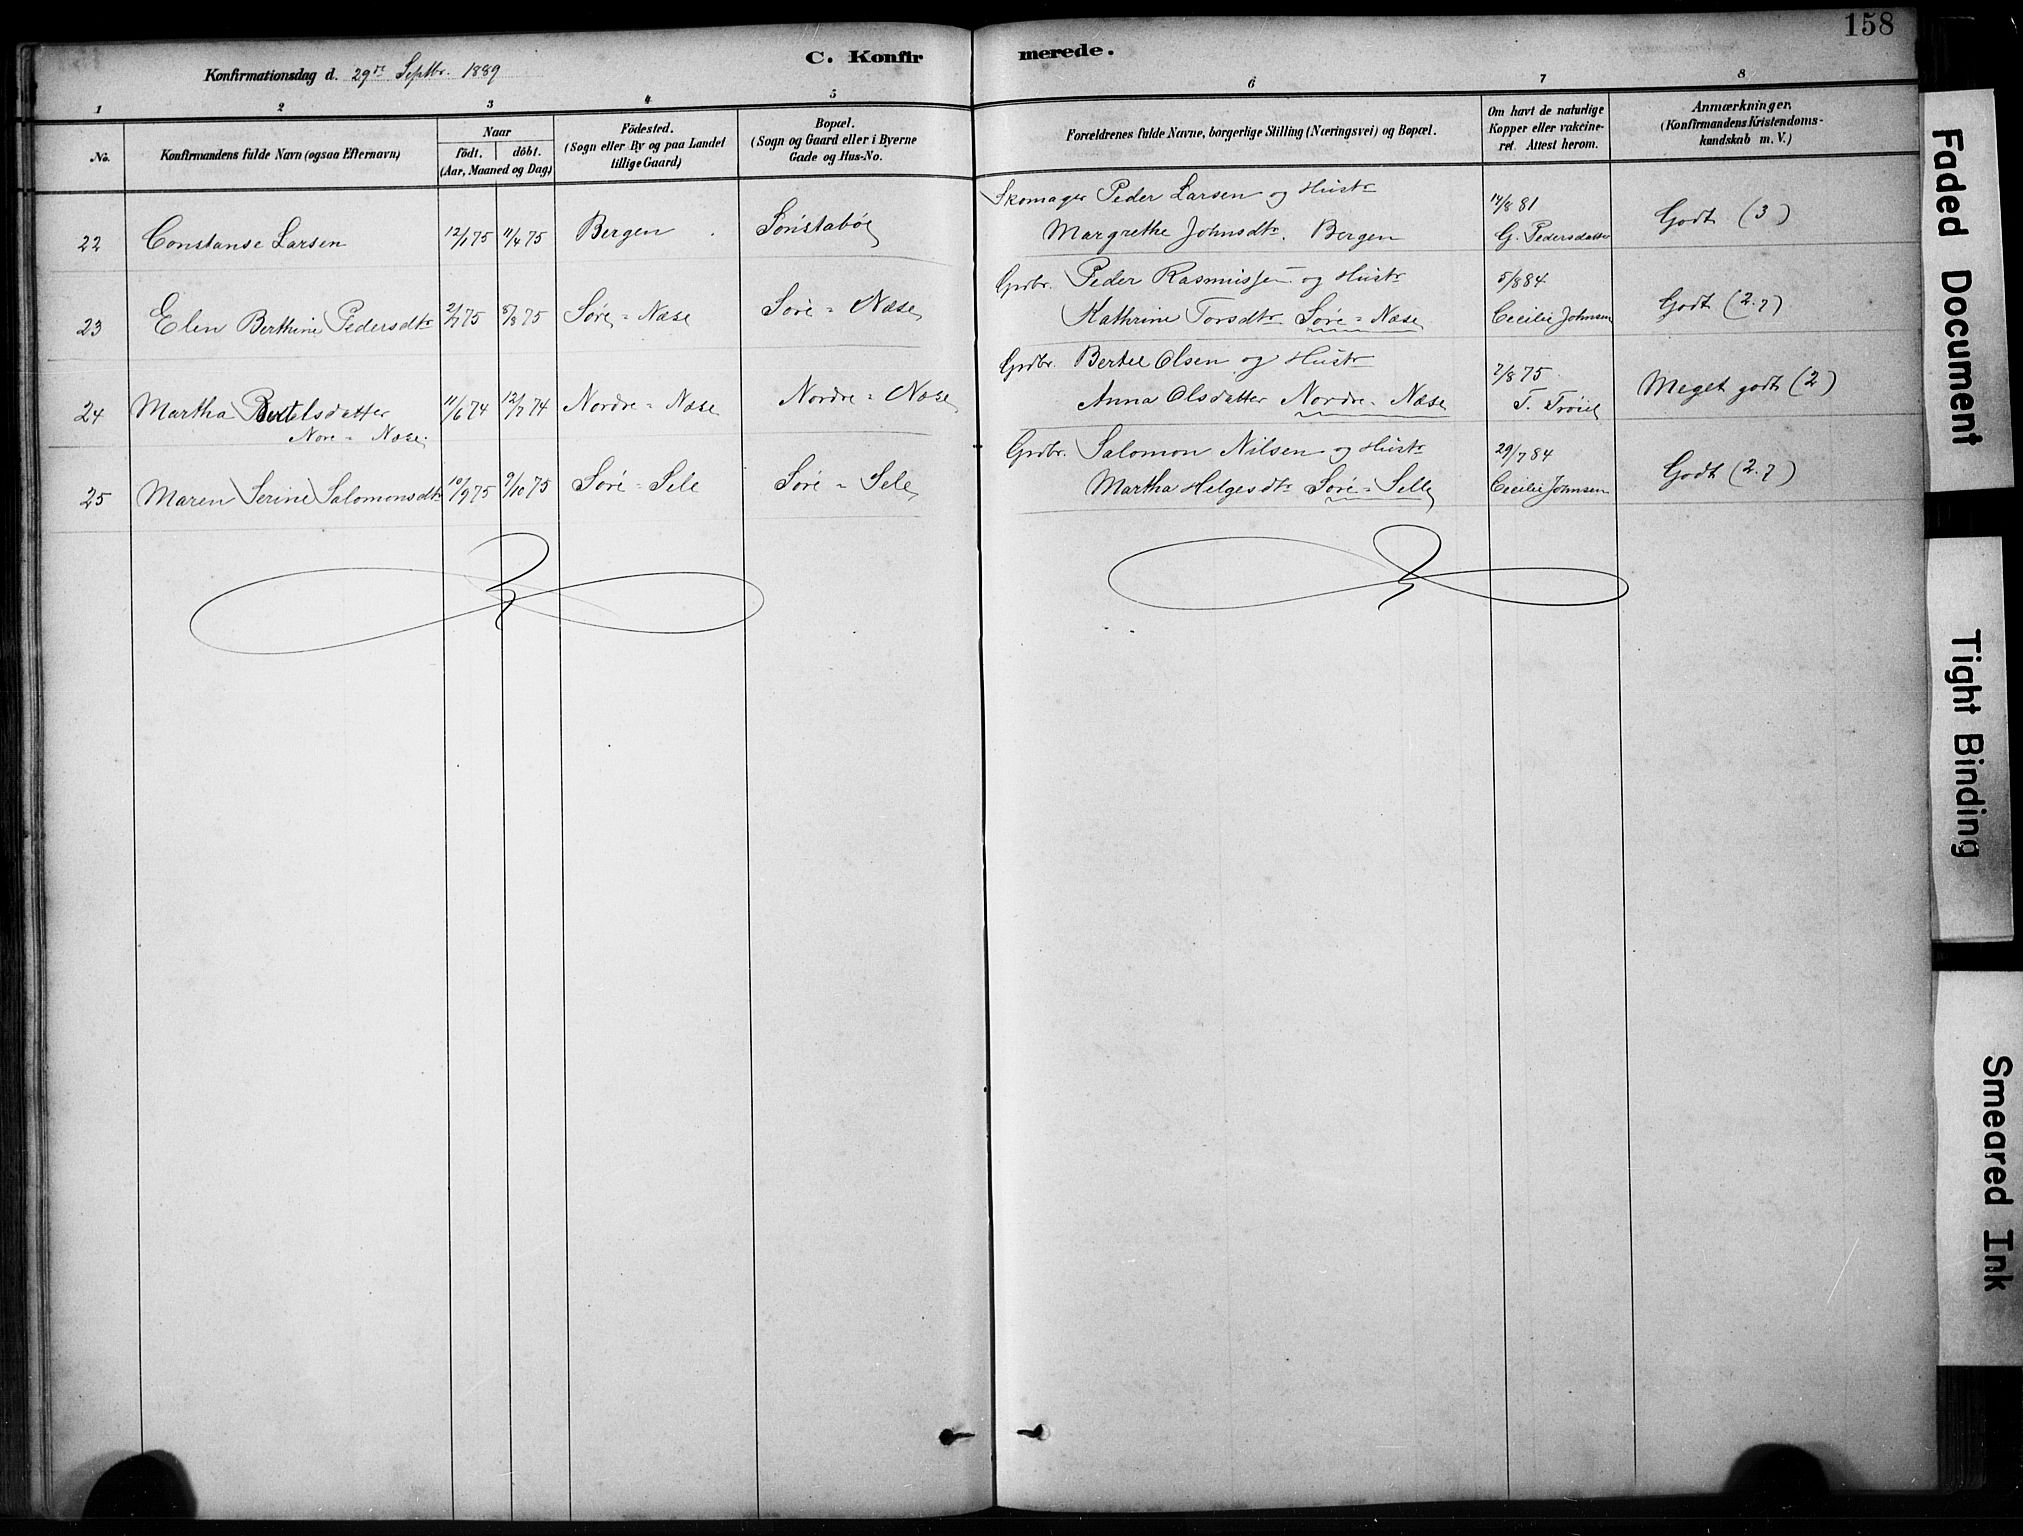 158
C. Konfirmerede.
Konfirmationsdag d. 29de Septbr. 1889
1 2 3 4 5 6 7 8
No.
Konfirmandens fulde Navn (ogsaa Efternavn)
Naar
födt. döbt.
(Aar, Maaned og Dag)
Födested.
(Sogn eller By og paa Landet
tillige Gaard)
Bopæl.
(Sogn og Gaard eller i Byerne
Gade og Hus-No.
Forældrenes fulde Navne, borgerlige Stilling (Næringsvei) og Bopæl.
Om havt de naturlige
Kopper eller vakcine-
ret. Attest herom.
Anmærkninger.
(Konfirmandens Kristendoms-
kundskab m. V.)
Skomager Peder Larsen og Hustr 14/8 81
22 Constanse Larsen 12/1 75 11/4 75 Bergen Sönstabö Margrethe Johnsdtr. Bergen G. Pedersdatter Godt (3)
Grdbr. Peder Rasmussen og Hustr 5/8 84
23 Elen Berthine Pedersdtr 2/7 75 8/8 75 Söre-Næse Söre-Næse Kathrine Torsdtr Söre-Næse Cecilie Johnsen Godt (2.7)
Grdbr. Bertel Olsen og Hustr 7/8 75
24 Martha Bertelsdatter 11/6 74 12/7 74 Nordre-Næse Nordre-Næse Anna Olsdatter Nordre-Næse T. Tröie Meget godt (2)
Nore-Næse.
Grdbr. Salomon Nilsen og Hustr 29/7 84
25 Maren Serine Salomonsdtr 10/9 75 9/10 75 Söre-Sele Söre-Sele Martha Helgesdtr Söre-Selle Cecilie Johnsen Godt (2.7)
Faded Document
Tight Binding
Smeared Ink